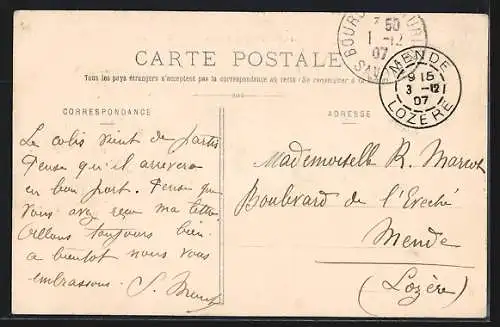 CARTE POSTALE
Tous les pays étrangers n'acceptent pas la correspondance au recto (Se renseigner à la
CORRESPONDANCE
ADRESSE
50
1 -12
07
MENDE
9 15
3 -12
07
LOZERE
Le colis vient de partir
Pense qu'il arrivera
en bon port. Pense que
vous avez reçu ma lettre
Allons toujours bien
a bientot nous vous
embrassons. S.
Mademoiselle R.
Boulevard de l'Eveché
Mende
(Lozère)